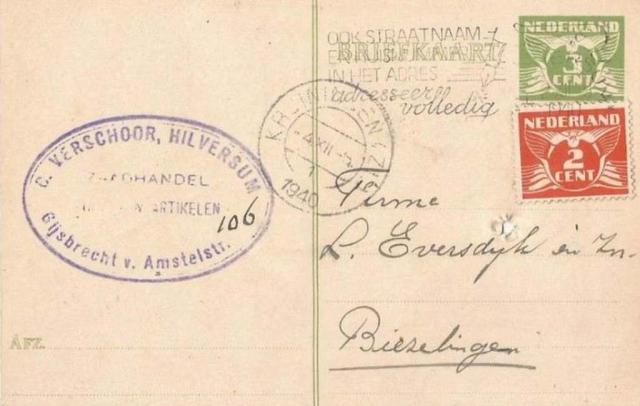 OOK STRAATNAAM
IN HET ADRES
adresseer volledig
BRIEFKAART
NEDERLAND
3 CENT
NEDERLAND
2 CENT
KR
4 XII
1
1940
C. VERSCHOOR, HILVERSUM
HANDEL
ARTIKELEN
106
Gijsbrecht v. Amstelstr.
Firma
L. Eversdyk en Zn.
Biezelingen
AFZ.